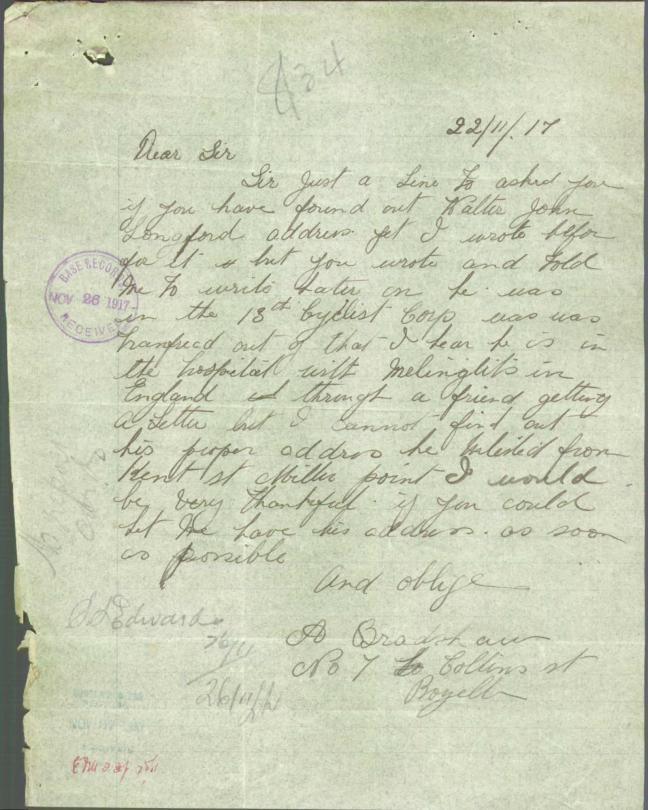 434
22/11/.17
Dear Sir
Sir Just a Line to asked you
if you have found out Walter John
Longford address yet I wrote befor
for it & but you wrote and told
me to write Later on he was
in the 13th Cyclist Corp was was
out of that I hear he is in
the hospital with in
England through a friend getting
a Letter but I cannot find out
his proper address he from
Kent st Miller point I would
be very thankful if you could
let me have his address as soon
as possible
And oblige
A Bradshaw
No 7 Collins st
BASE RECORDS
NOV 26 1917
RECEIVED
Edwards
26/11
26/11/17